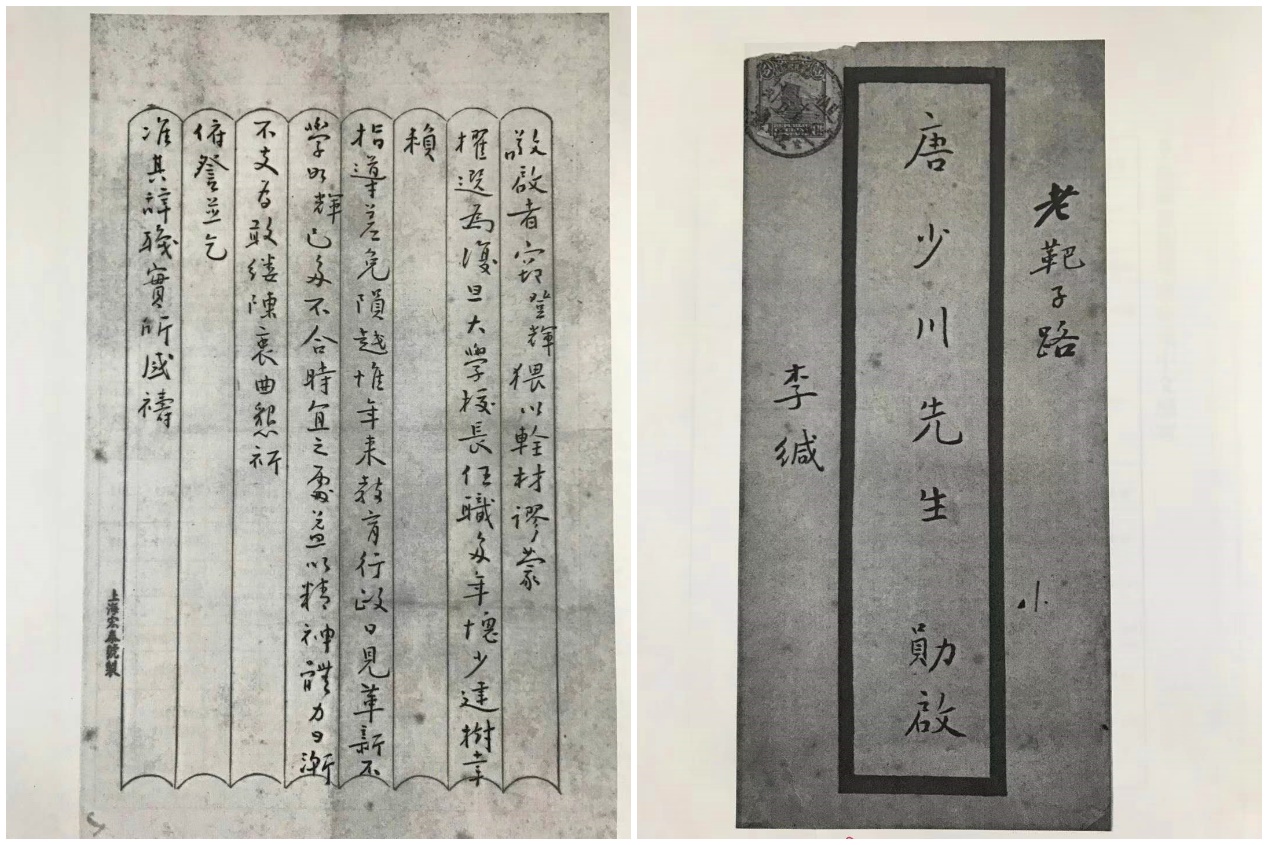 敬啟者竊登輝猥以輇材謬蒙
擢選為復旦大學校長任職多年愧少建樹幸
賴
指導差免隕越惟年來教育行政日見革新不
學如輝已多不合時宜之處益以精神體力日漸
不支為敢縷陳衷曲懇祈
俯詧並乞
准其辭職實所感禱
上海宏泰製
老靶子路
小
唐少川先生 勛啟
李緘